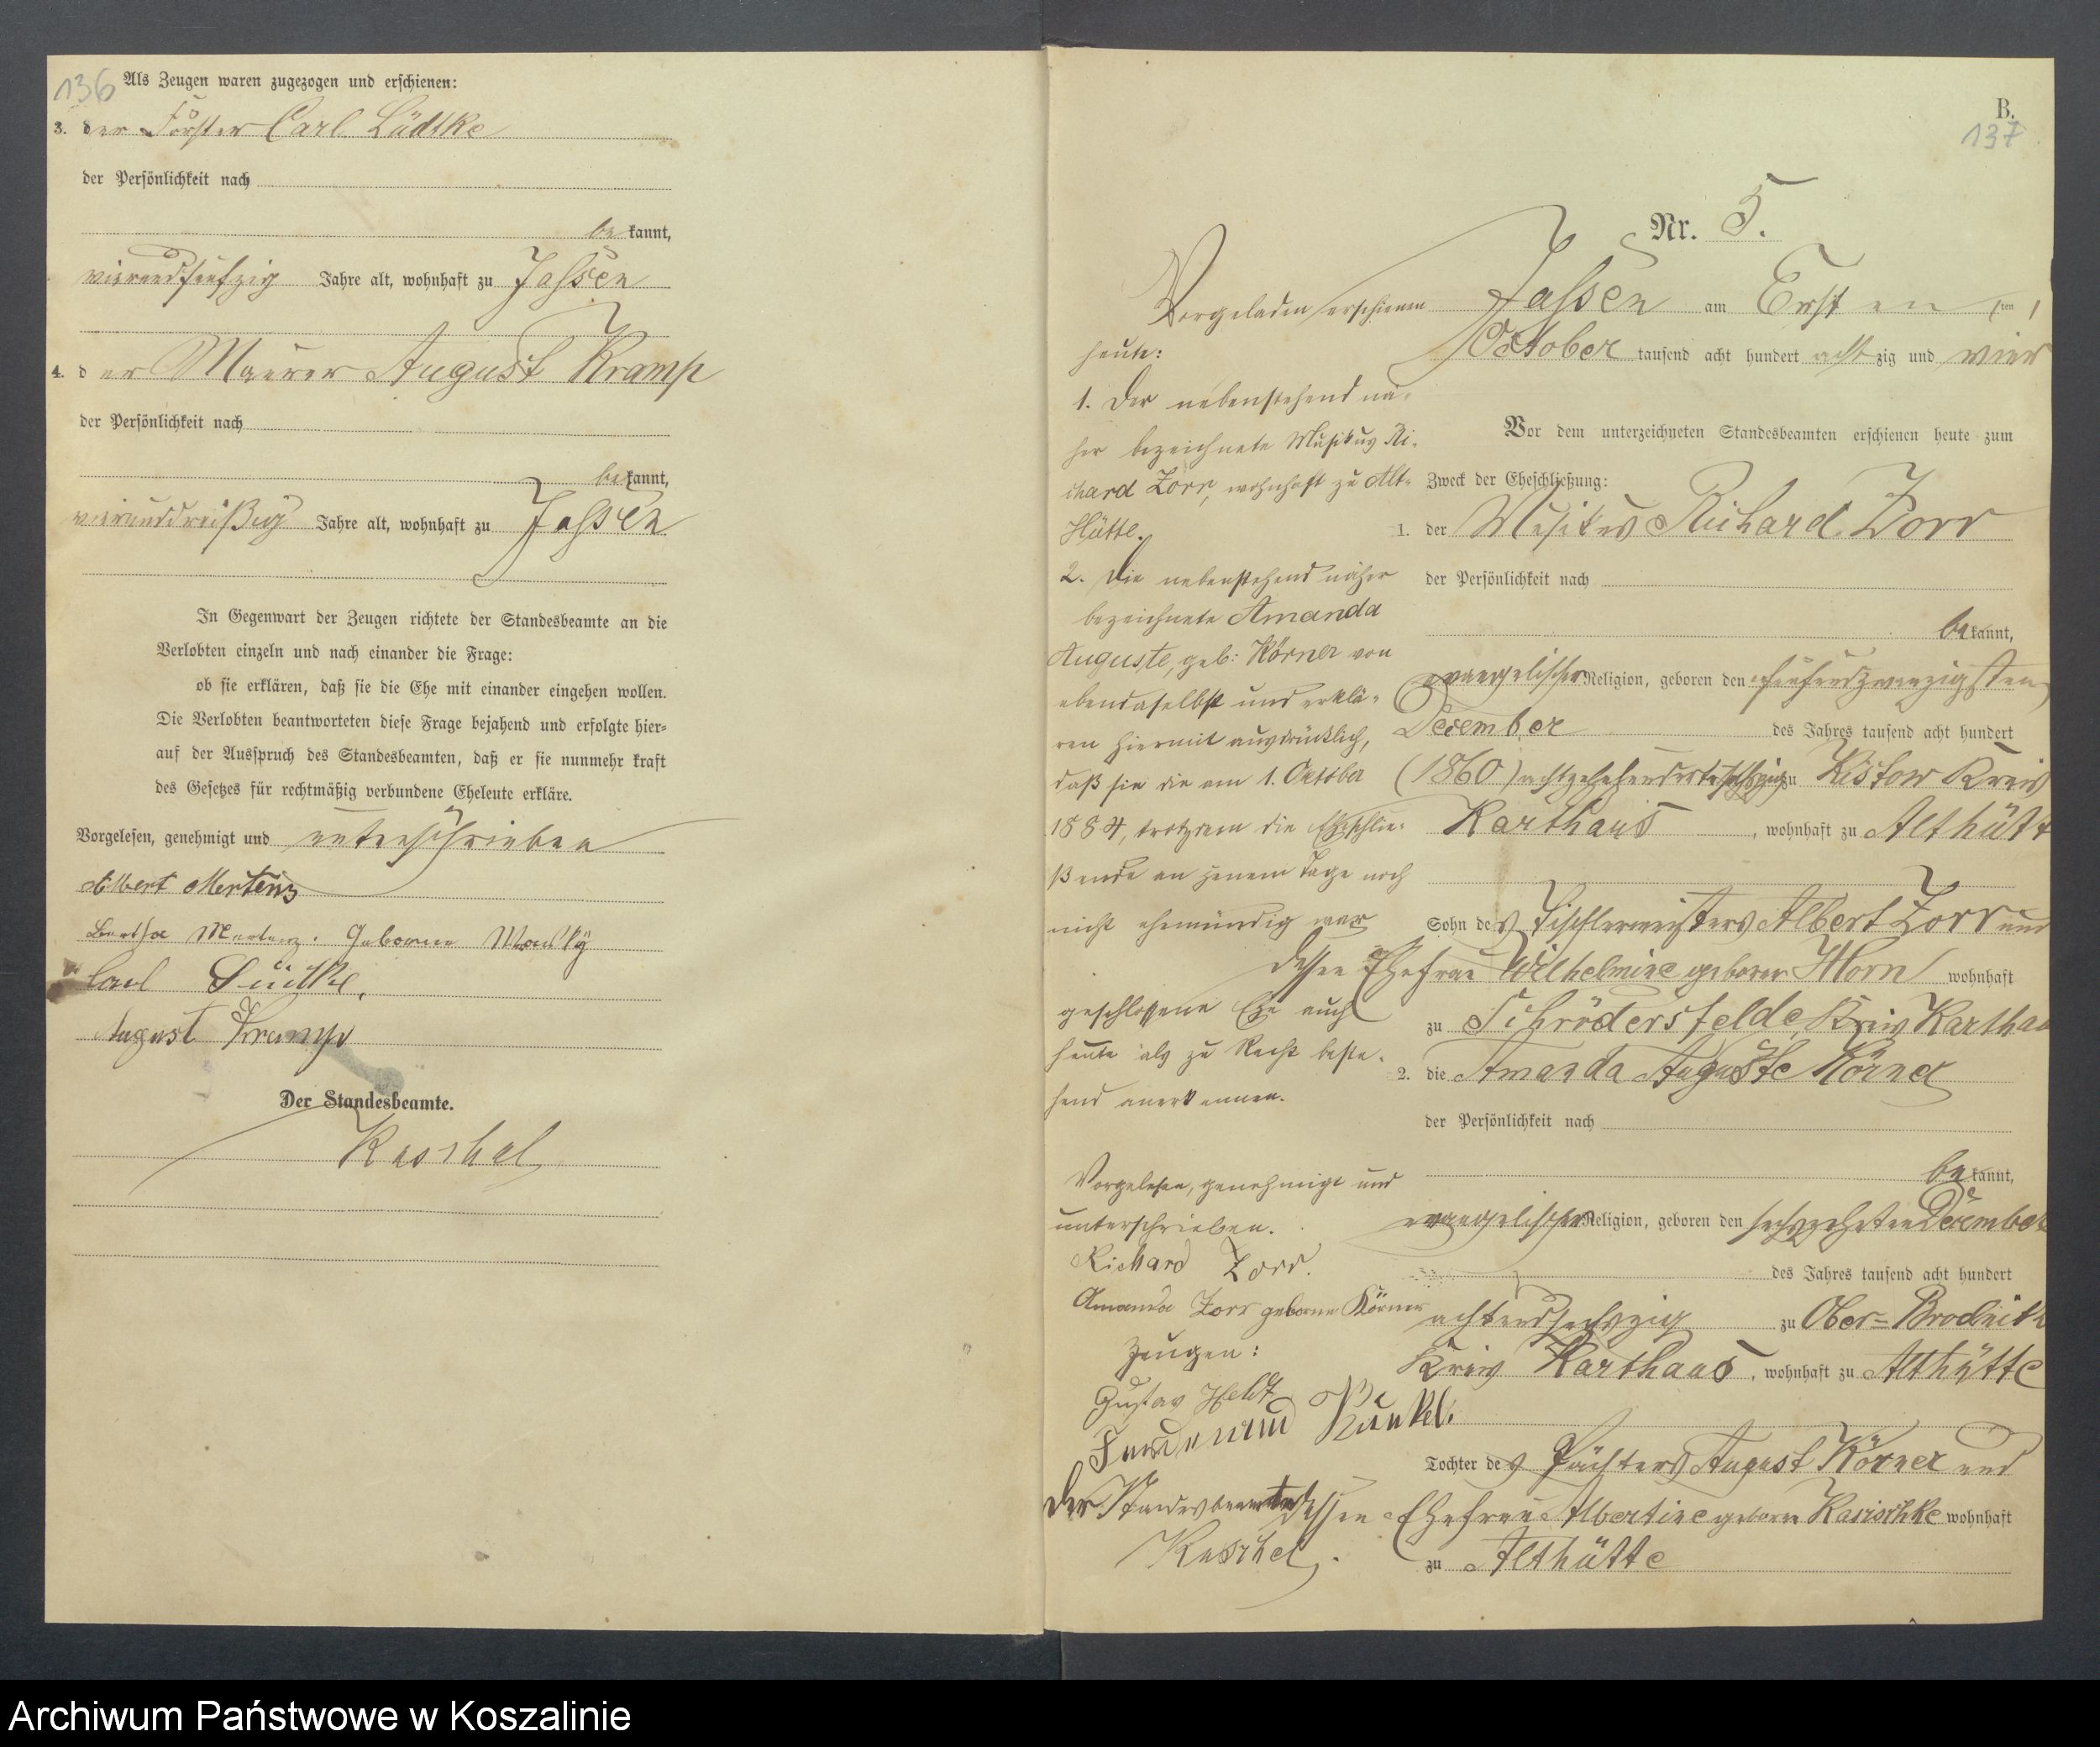 136
Als Zeugen waren zugezogen und erschienen:
3. der Förster Carl Lüdtke
der Persönlichkeit nach
bekannt,
vierundfünfzig Jahre alt, wohnhaft zu Jassen
4. der Maurer August Kramp
der Persönlichkeit nach
bekannt,
vierunddreißig Jahre alt, wohnhaft zu Jassen
In Gegenwart der Zeugen richtete der Standesbeamte an die
Verlobten einzeln und nach einander die Frage:
ob sie erklären, daß sie die Ehe mit einander eingehen wollen.
Die Verlobten beantworteten diese Frage bejahend und erfolgte hier-
auf der Ausspruch des Standesbeamten, daß er sie nunmehr kraft
des Gesetzes für rechtmäßig verbundene Eheleute erkläre.
Vorgelesen, genehmigt und unterschrieben
Albert Mertens
Bertha Mertens. Geborene
Carl Lüdtke.
August Kramp
Der Standesbeamte.
Kaschel
B.
137
Nr. 5.
Jassen am Ersten ten
October tausend acht hundert achtzig und vier
Vor dem unterzeichneten Standesbeamten erschienen heute zum
Zweck der Eheschließung:
1. der Musikus Richard Zorr
der Persönlichkeit nach
bekannt,
evangelischer Religion, geboren den fünfundzwanzigsten
December des Jahres tausend acht hundert
(1860) achtzehnhundertsechszig zu Kistow Kreis
Karthaus, wohnhaft zu Althütte
Sohn des Tischlermeisters Albert Zorr und
dessen Ehefrau Wilhelmine geborene Horn wohnhaft
zu Schrödersfelde, Kreis Karthaus
2. die Amanda Auguste Körner
der Persönlichkeit nach
bekannt,
evangelischer Religion, geboren den sechszehnten December
des Jahres tausend acht hundert
achtundsechszig zu Ober-Brodnitz
Kreis Karthaus, wohnhaft zu Althütte
Tochter des Pächters August Körner und
dessen Ehefrau Albertine geborene Karischke wohnhaft
zu Althütte
Vorgeladen erschienen
heute:
1. Der nebenstehend nä-
her bezeichnete Musikus Ri-
chard Zorr, wohnhaft zu Alt-
Hütte.
2. Die nebenstehend näher
bezeichnete Amanda
Auguste, geb: Körner von
ebendaselbst und erklä-
ren hiermit ausdrücklich,
daß sie die am 1. October
1884, trotzdem die Eheschlie-
ßende an jenem Tage noch
nicht ehemündig war
geschlossene Ehe auch
heute als zu Recht beste-
hend anerkennen.
Vorgelesen, genehmigt und
unterschrieben.
Richard Zorr.
Amanda Zorr geborene Körner
Zeugen:
Gustav Heldt
Ferdinand Kunkel.
Der Standesbeamte
Kaschel.
Archiwum Państwowe w Koszalinie